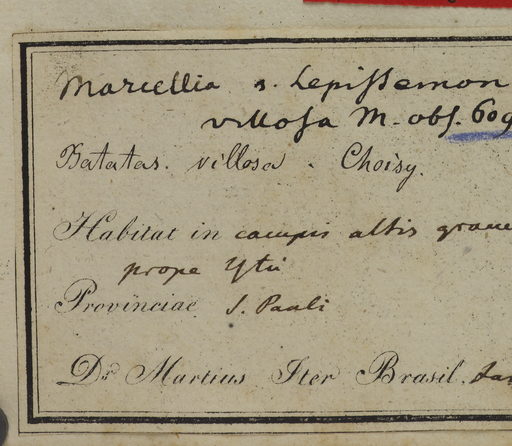 Marcellia s. Lepissemon
villosa M. obs. 609
Batatas villosa . Choisy.
Habitat in campis altis
prope Ytú
Provinciae S. Pauli
Dr. Martius Iter Brasil.